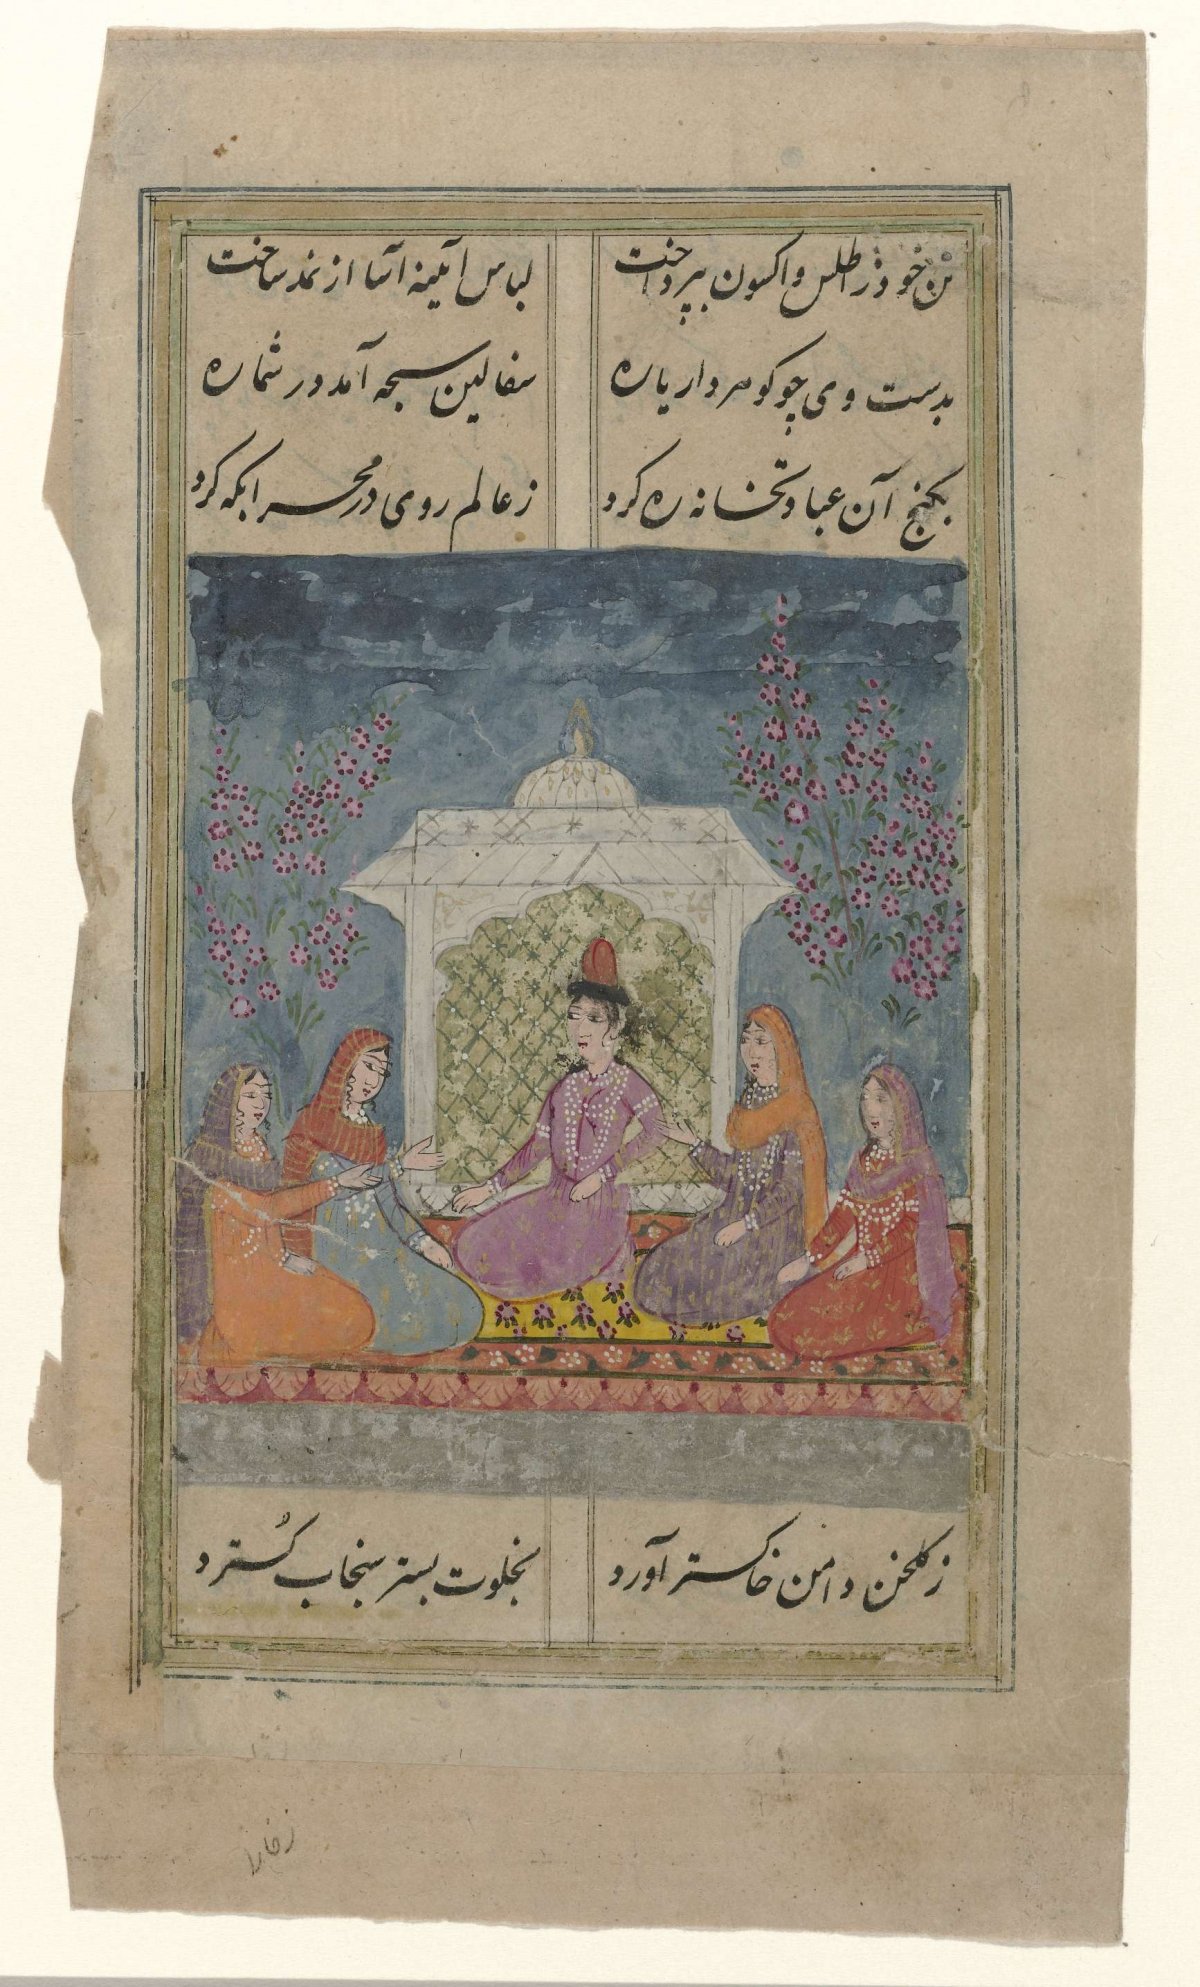 تن خود ز اطلس و اکسون بپرداخت
لباس آیینه آسا از نمد ساخت
بدست وی چو گوهردار یاره
سفالین سبحه آمد در شماره
بکنج آن عبادتخانه ره کرد
ز عالم روی در محرابگه کرد
ز گلخن دامن خاکستر آورد
بخلوت بستر سنجاب گسترد